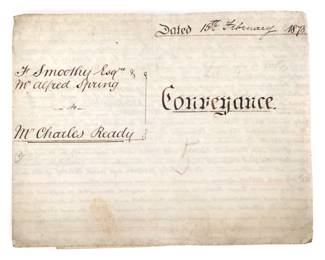 Dated 15th February 1878
F Smoothy Esqre &
Mr Alfred Spring
to
Mr Charles Ready
Conveyance.